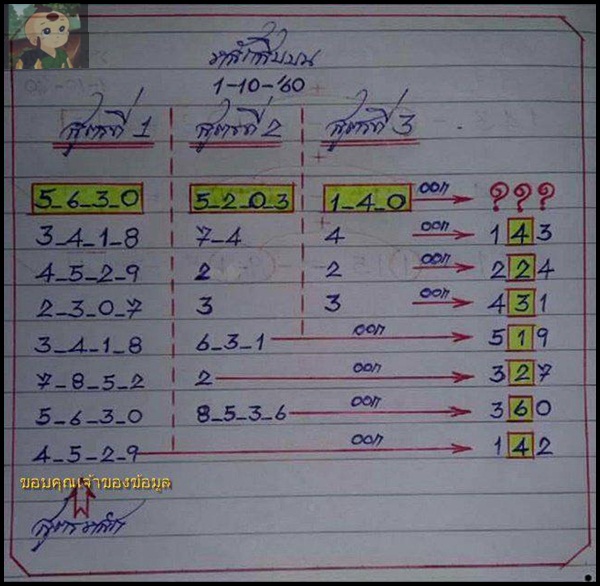 หลักสิบบน
1-10-'60
สูตรที่ 1 สูตรที่ 2 สูตรที่ 3
5_6_3_0 5_2_0_3 1_4_0 ออก ? ? ?
3_4_1_8 7_4 4 ออก 1 4 3
4_5_2_9 2 2 ออก 2 2 4
2_3_0_7 3 3 ออก 4 3 1
3_4_1_8 6_3_1 ออก 5 1 9
7_8_5_2 2 ออก 3 2 7
5_6_3_0 8_5_3_6 ออก 3 6 0
4_5_2_9 ออก 1 4 2
ขอบคุณเจ้าของข้อมูล
สูตรหลัก